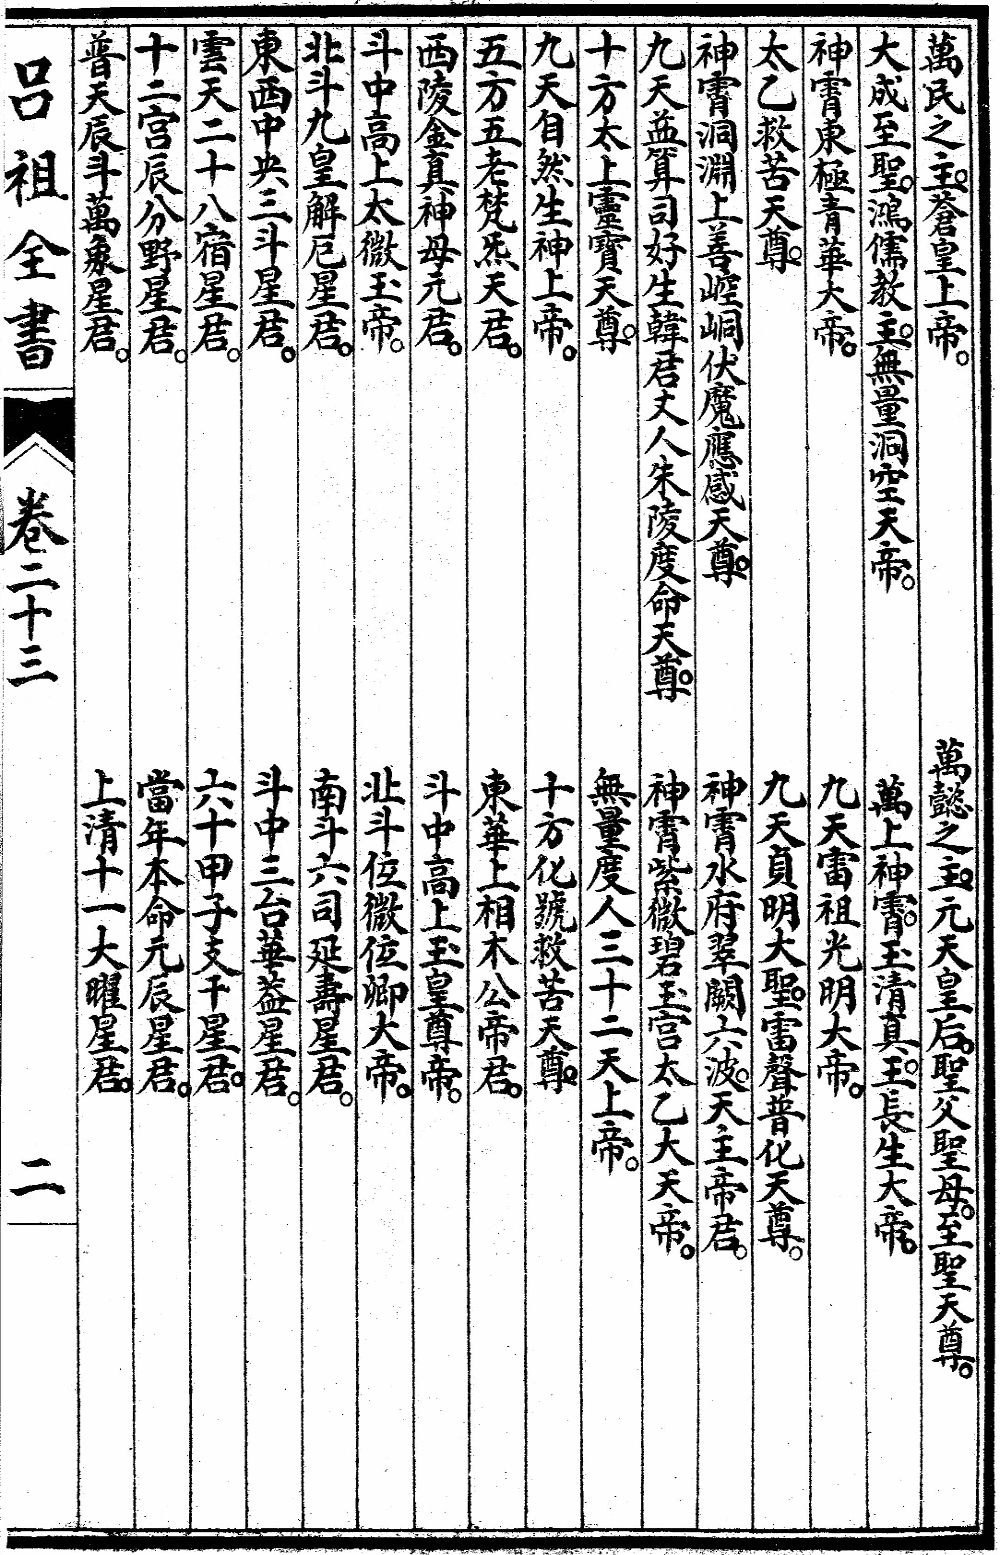 萬民之主。蒼皇上帝。　萬懿之主。元天皇后。聖父聖母。至聖天尊。
大成至聖。鴻儒教主。無量洞空天帝。　萬上神霄。玉清真王。長生大帝。
神霄東極青華大帝。　九天雷祖光明大帝。
太乙救苦天尊。　九天貞明大聖。雷聲普化天尊。
神霄洞淵上善崆峒伏魔應感天尊。　神霄水府翠闕六波。天主帝君。
九天益算司好生韓君丈人朱陵度命天尊。　神霄紫微碧玉宮太乙大天帝。
十方太上靈寶天尊。　無量度人三十二天上帝。
九天自然生神上帝。　十方化號救苦天尊。
五方五老梵炁天君。　東華上相木公帝君。
西陵金真神母元君。　斗中高上玉皇尊帝。
斗中高上太微玉帝。　北斗位微位卿大帝。
北斗九皇解厄星君。　南斗六司延壽星君。
東西中央三斗星君。　斗中三台華蓋星君。
雲天二十八宿星君。　六十甲子支干星君。
十二宮辰分野星君。　當年本命元辰星君。
普天辰斗萬象星君。　上清十一大曜星君。
呂祖全書　卷二十三　二